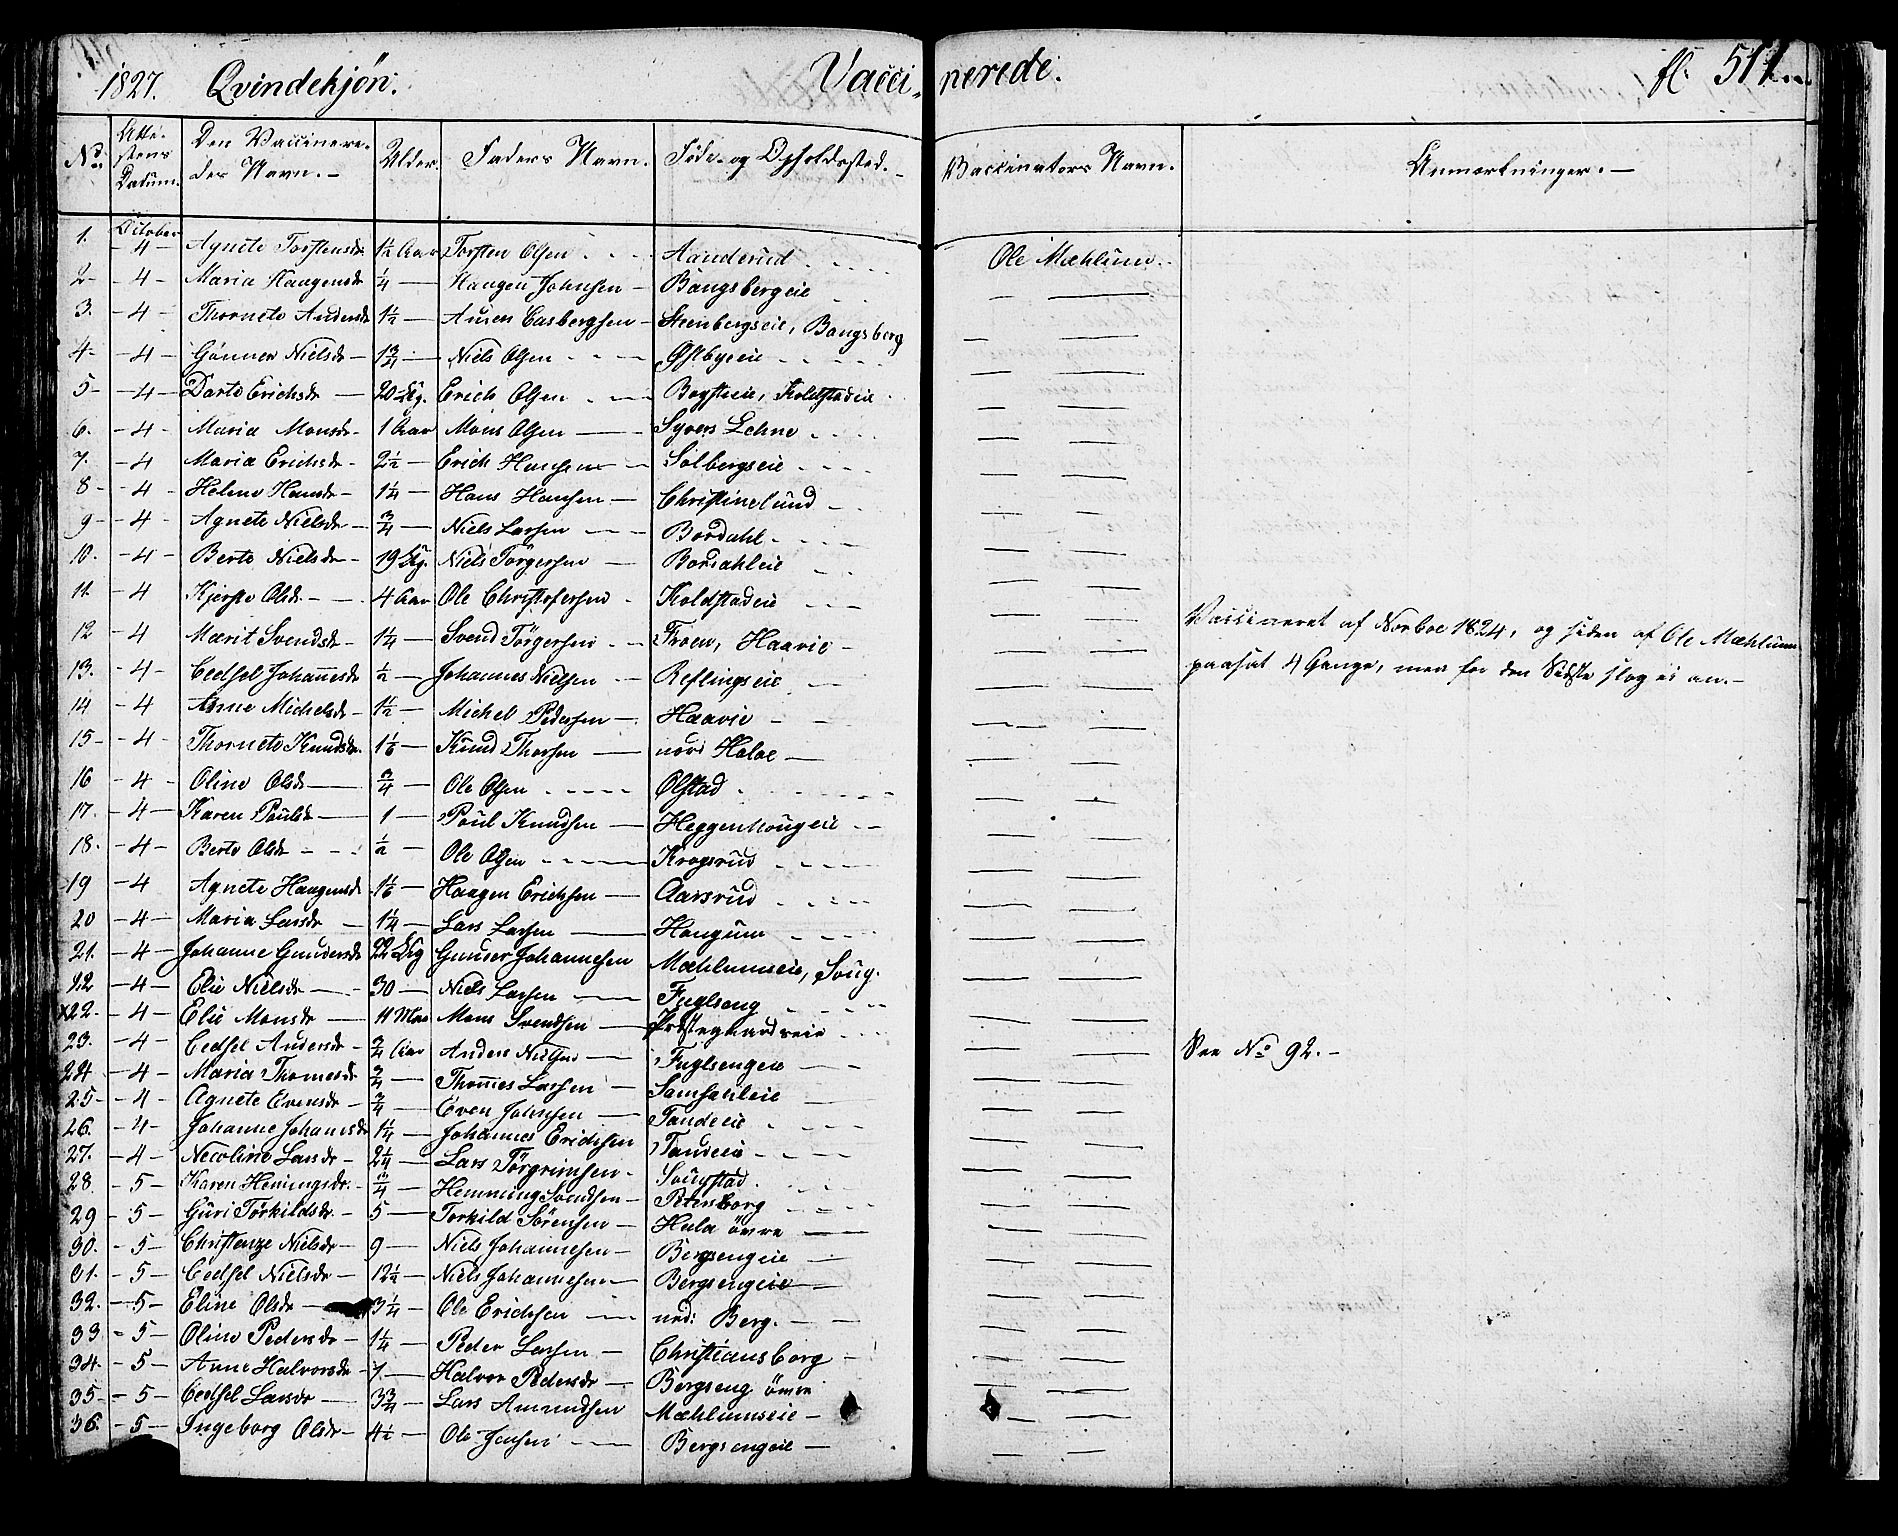 1827. Qvindekjön. Vacci- nerede. fl. 511
No. Attestens Datum. Den Vaccineredes Navn. Alder. Faders Navn. Føde- og Opholdssted. Vaccinators Navn. Anmærkninger.
October
1. - 4 - Agnete Torstensdr 1½ Aar Torsten Olsen Aanderud Ole Mæhlum
2 - 4 - Maria Haagensdr ¼ — Haagen Johnsen Bangsbergeie — —
3. - 4 - Thornete Andersdr 1½ — Casbergsen Steenbergseie, Bangsberg — —
4 - 4 - Gønner Nielsdr 1¾ — Niels Olsen Østbyeie — —
5 - 4 - Dorte Erichsdr 20 Erich Olsen Koldstadeie — —
6. - 4 - Maria Monsdr 1 Aar Mons Olsen Syvers Lehne — —
7. - 4 Maria Erichsdr 2½ — Erich Hansen Solbergseie — —
8 - 4 - Helene Hansdr 1¼ — Hans Hansen Christinelund — —
9 - 4 - Agnete Nielsdr ¾ — Niels Larsen Bordahl — —
10. - 4 - Berte Nielsdr 19 Niels Törgersen Bordahleie — —
11. - 4 Kjerste Olsdr 4 Aar Ole Christofersen Koldstadeie — —
12 - 4 Marit Svendsdr 1¼ — Svend Törgersen Froen, Haavie — — Vaccineret af Norboe 1824, og siden af Ole Mæhlum
paasat 4 Gange, men for den Sidste slog ei an. -
13. - 4 - Cedsel Johannesdr ½ — Johannes Nielsen Reflingseie — —
14 - 4 Anne Michelsdr 1½ — Michel Pedersen Haavie — —
15 - 4 Thornete Knudsdr 1⅙ — Knud Thorsen nord Haloe — —
16 - 4 - Oline Olsdr ¾ Ole Olsen Olstad — —
17. - 4 - Karen Poulsdr 1 — Poul Knudsen Heggenhougeie — —
18. - 4 - Berte Olsdr ½ — Ole Olsen Krogsrud — —
19 - 4 Agnete Haagensdr 1⅙ — Haagen Erichsen Aarsrud — —
20 - 4 - Maria Larsdr 1¼ — Lars Larsen Haugum — —
21. - 4 - Johanne Gundersdr 22 Gunder Johannesen Mæhlumseie, Soug. — —
22 - 4 - Elie Nielsdr 30 — Niels Larsen Fuglseng — —
x22. - 4 - Elie Monsdr 11 Mons Svendsen Præstegaardseie — — See No 92. -
23. - 4 - Cedsel Andersdr ¾ Aar Anders Nielsen Fuglsengeie — —
24. - 4 - Maria Thomesdr ¾ — Thomes Larsen Samsahleie — —
25 - 4 - Agnete Evensdr ¾ — Even Johnsen Tandeeie — —
26. - 4 - Johanne Johannesdr 1¼ — Johannes Erichsen Tandeie — —
27. - 4 - Necoline Larsdr 2¼ — Lars Törgrimsen Sougstad — —
28. - 5 - Karen Hemingsdr ¾ — Hemming Svendsen Petersborg — —
29 - 5 - Guri Torkildsdr 5 — Torkild Sörensen Hala övre — —
30. - 5 - Christenze Nielsdr 9 — Niels Johannesen Bergsengeie — —
31. - 5 - Cedsel Nielsdr 12½ — Niels Johannesen Bergsengeie — —
32. - 5 - Eline Olsdr 3¼ — Ole Erichsen ned: Berg. — —
33. - 5 - Oline Pedersdr 1¼ — Peder Larsen Christiansborg — —
34. - 5 - Anne Halvorsdr 7 — Halvor Pedersdr Bergseng övre — —
35 - 5 - Cedsel Larsdr 3¾ — Lars Amundsen Mæhlumseie — —
36. - 5 - Ingeborg Olsdr 4½ — Ole Jensen Bergsengeie — —